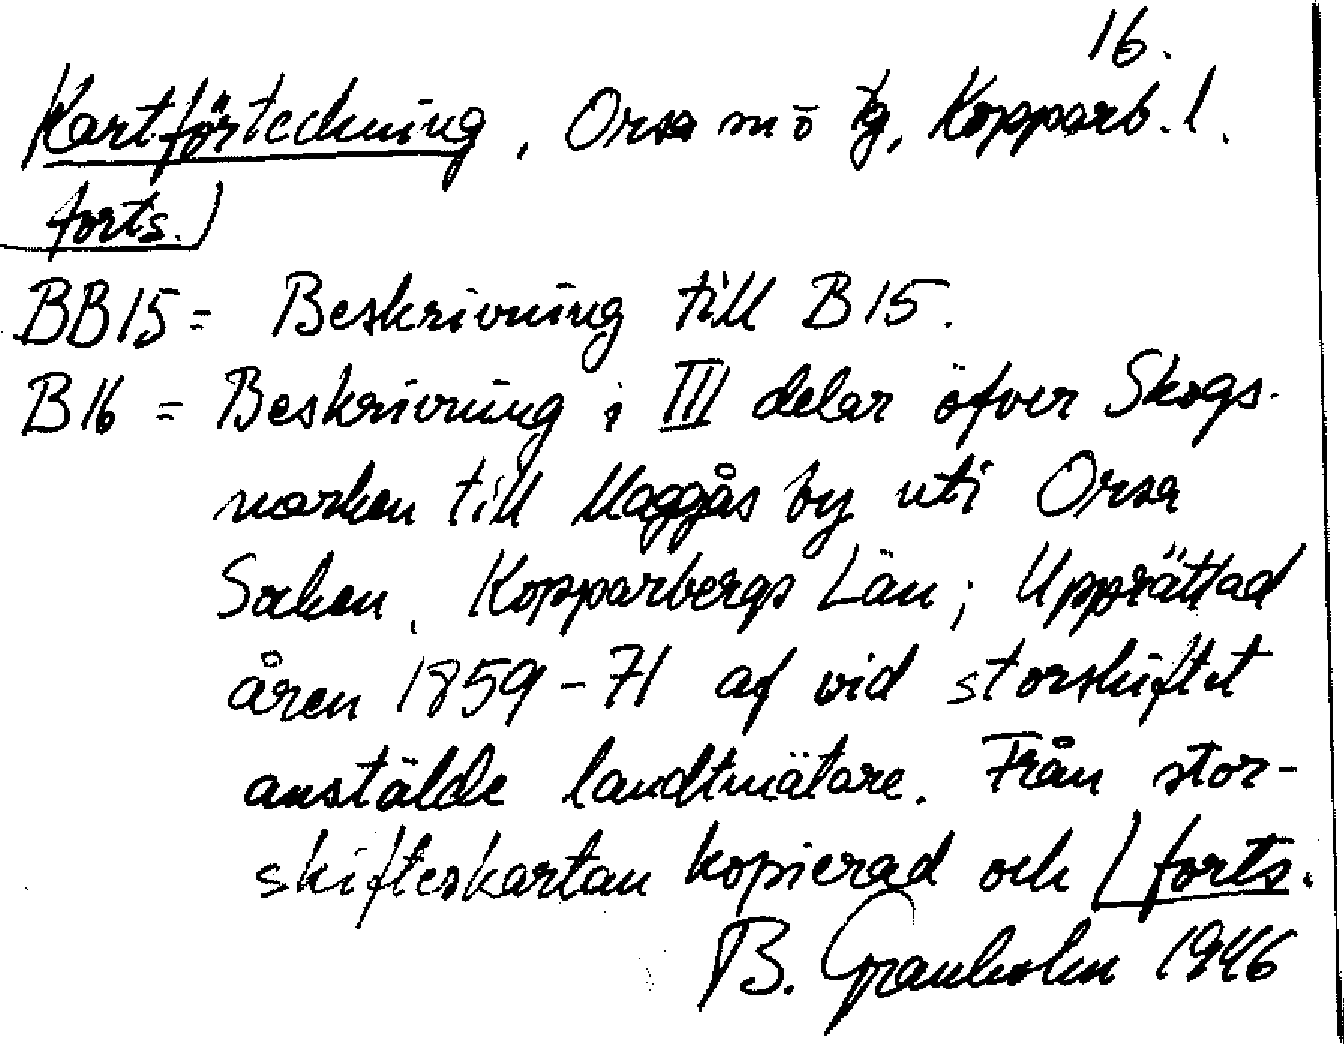 16.
Kartförteckning, Orsa m ö tg, Kopparb. l.
forts.)
BB15 = Beskrivning till B15.
B16 = Beskrivning i III delar öfver Skogs-
marken till Maggås by uti Orsa
Socken, Kopparbergs Län; Upprättad
åren 1859-71 af vid storskiftet
anstälde landtmätare. Från stor-
skifteskartan kopierad och (forts.
B. Granholm 1946